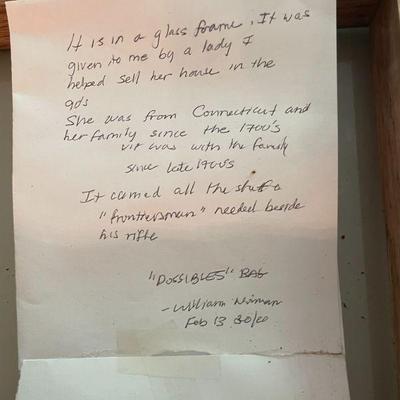 It is in a glass frame, It was
given to me by a lady I
helped sell her house in the
90s
She was from Connecticut and
her family since the 1700's
it was with the family
since late 1900's
It carried all the stuff a
"frontiersman" needed beside
his rifle
"POSSIBLES" BAG
- William
Feb 13